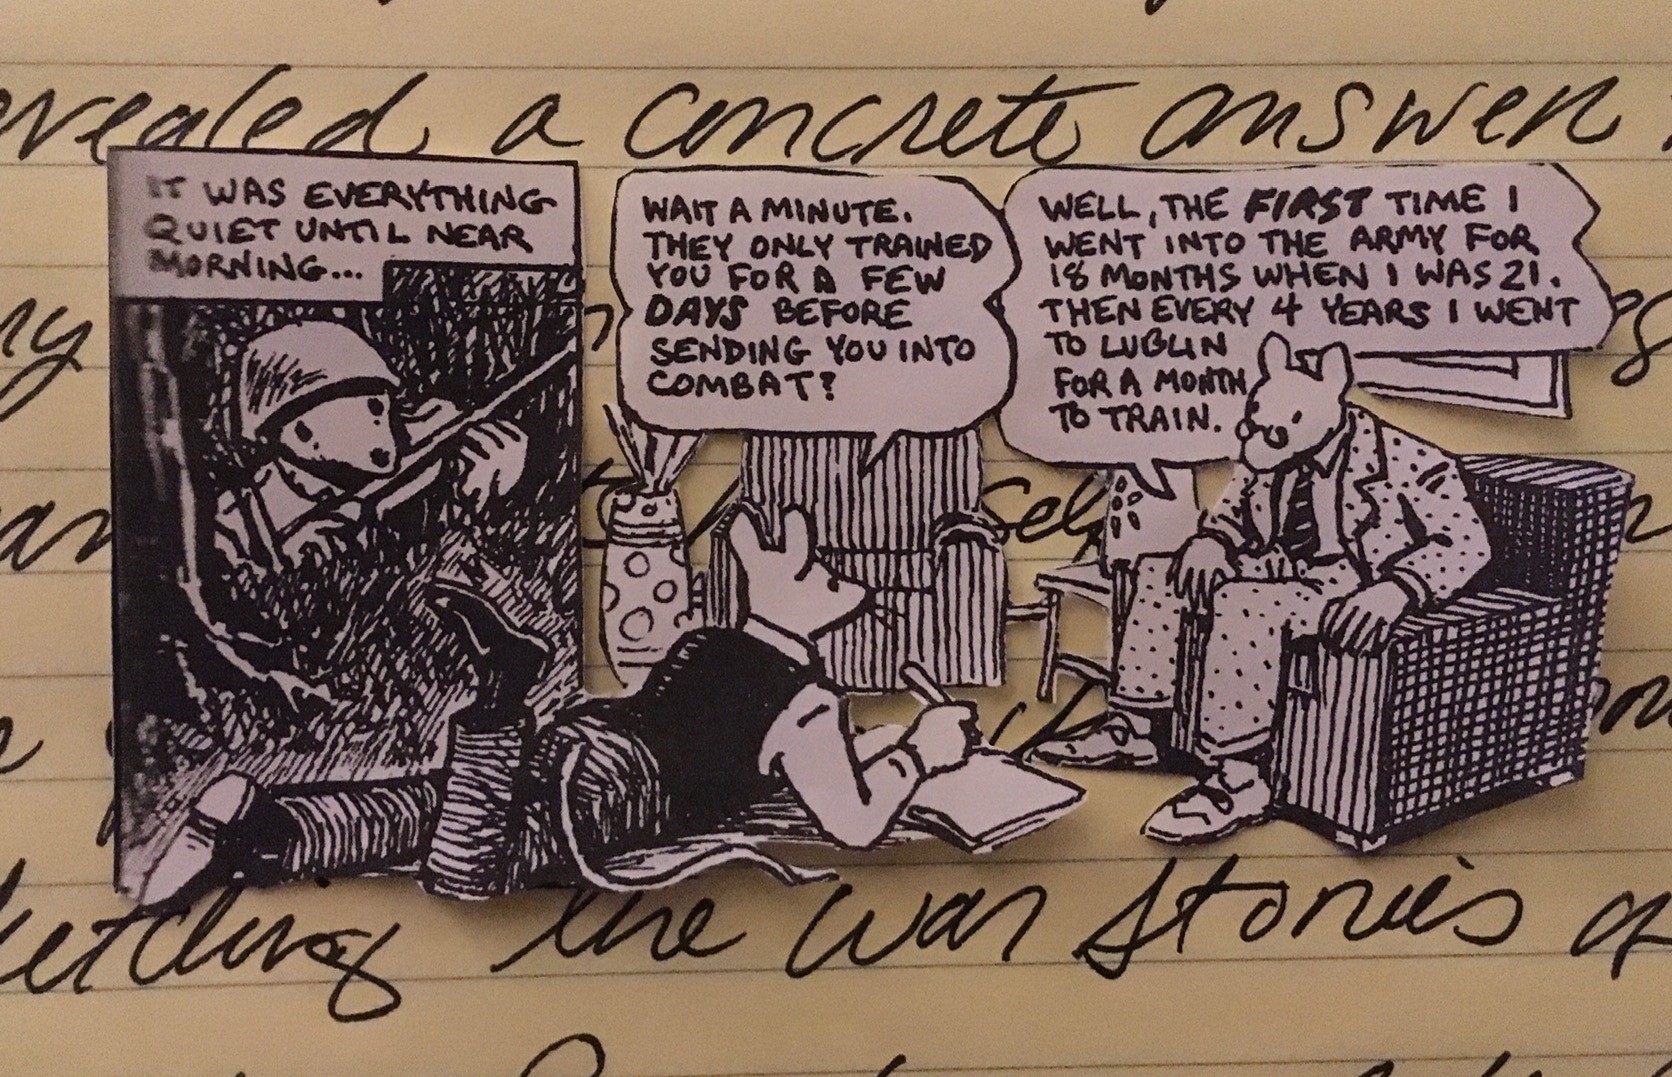 revealed a concrete answer
IT WAS EVERYTHING
QUIET UNTIL NEAR
MORNING...
WAIT A MINUTE.
THEY ONLY TRAINED
YOU FOR A FEW
DAYS BEFORE
SENDING YOU INTO
COMBAT?
WELL, THE FIRST TIME I
WENT INTO THE ARMY FOR
18 MONTHS WHEN I WAS 21.
THEN EVERY 4 YEARS I WENT
TO LUBLIN
FOR A MONTH
TO TRAIN.
the war stories of